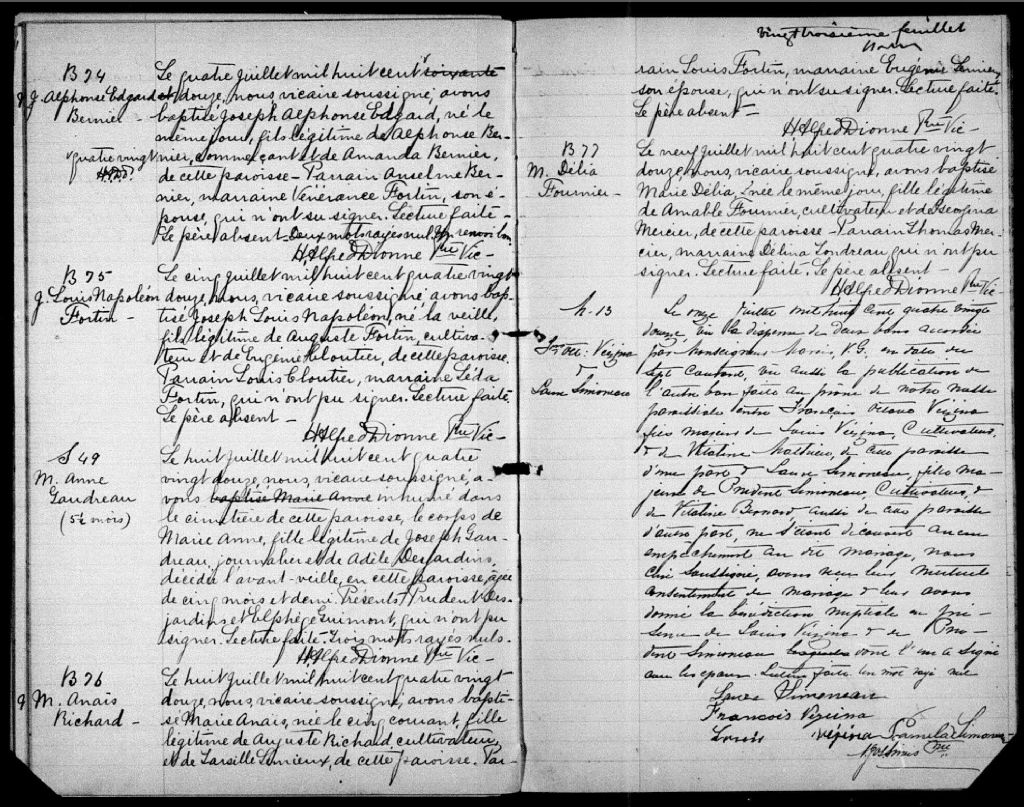 B 74
J. Alphonse Edgard
Bernier -
quatre vingt
H.A.D.
Le quatre juillet mil huit cent soixante
et douze, nous, vicaire soussigné, avons
baptisé Joseph Alphonse Edgard, né le
même jour, fils légitime de Alphonse Ber-
nier, commerçant et de Amanda Bernier,
de cette paroisse - Parrain Anselme Ber-
nier, marraine Vénérance Fortin, son é-
pouse, qui n'ont su signer. Lecture faite -
Le père absent - Deux mots rayés nuls, renvoi bon
H. Alfred Dionne Ptre Vic -
B 75
J. Louis Napoléon
Fortin -
Le cinq juillet mil huit cent quatre vingt
douze, nous, vicaire soussigné avons bap-
tisé Joseph Louis Napoléon, né la veille,
fils légitime de Auguste Fortin, cultiva-
teur et de Eugénie Cloutier, de cette paroisse.
Parrain Louis Cloutier, marraine Léda
Fortin, qui n'ont pu signer. Lecture faite.
Le père absent -
H. Alfred Dionne Ptre Vic -
S 49
M. Anne
Gaudreau
(5½ mois)
Le huit juillet mil huit cent quatre
vingt douze, nous, vicaire soussigné, a-
vons baptisé Marie Anne inhumé dans
le cimetière de cette paroisse, le corps de
Marie Anne, fille légitime de Joseph Gau-
dreau, journalier et de Adèle Desjardins,
décédée l'avant-veille, en cette paroisse, âgée
de cinq mois et demi. Présents Prudent Des-
jardins et Elphège Guimont, qui n'ont pu
signer. Lecture faite. Trois mots rayés nuls.
H. Alfred Dionne Ptre Vic -
B 76
M. Anaïs
Richard -
Le huit juillet mil huit cent quatre vingt
douze, nous, vicaire soussigné, avons bapti-
sé Marie Anaïs, née le cinq courant, fille
légitime de Auguste Richard, cultivateur,
et de Larsille Lemieux, de cette paroisse. Par-
vingt troisième feuillet
rain Louis Fortin, marraine Eugénie Lemieux,
son épouse, qui n'ont su signer. Lecture faite.
Le père absent -
H. Alfred Dionne Ptre Vic -
B 77
M. Délia
Fournier -
Le neuf juillet mil huit cent quatre vingt
douze, nous, vicaire soussigné, avons baptisé
Marie Délia, née le même jour, fille légitime
de Amable Fournier, cultivateur et de Georgina
Mercier, de cette paroisse - Parrain Thomas Mer-
cier, marraine Délina Gaudreau, qui n'ont pu
signer. Lecture faite. Le père absent -
H. Alfred Dionne Ptre Vic -
M. 13
Frs Oct: Vézina
&
Laure Simoneau
Le onze Juillet mil huit cent quatre vingt
douze, vu la dispense de deux bans accordée
par Monseigneur Marois, V.G. en date du
sept Courant, vu aussi la publication de
l'autre ban faite au prône de notre messe
paroissiale entre François Octave Vézina
fils majeur de Louis Vézina, Cultivateur,
& de Vitaline Mathieu, de cette paroisse
d'une part & Laure Simoneau, fille ma-
jeure de Prudent Simoneau, Cultivateur, &
de Vitaline Bernard aussi de cette paroisse
d'autre part, ne s'étant découvert aucun
empêchement au dit mariage, nous
Curé soussigné, avons reçu leur mutuel
consentement de mariage & leur avons
donné la bénédiction nuptiale en pré-
sence de Louis Vézina & de Pru-
dent Simoneau dont l'un a signé
avec les époux. Lecture faite. Un mot rayé nul
Laure Simoneau
Francois Vézina
Louis Vézina Pamela Simoneau
Ptre